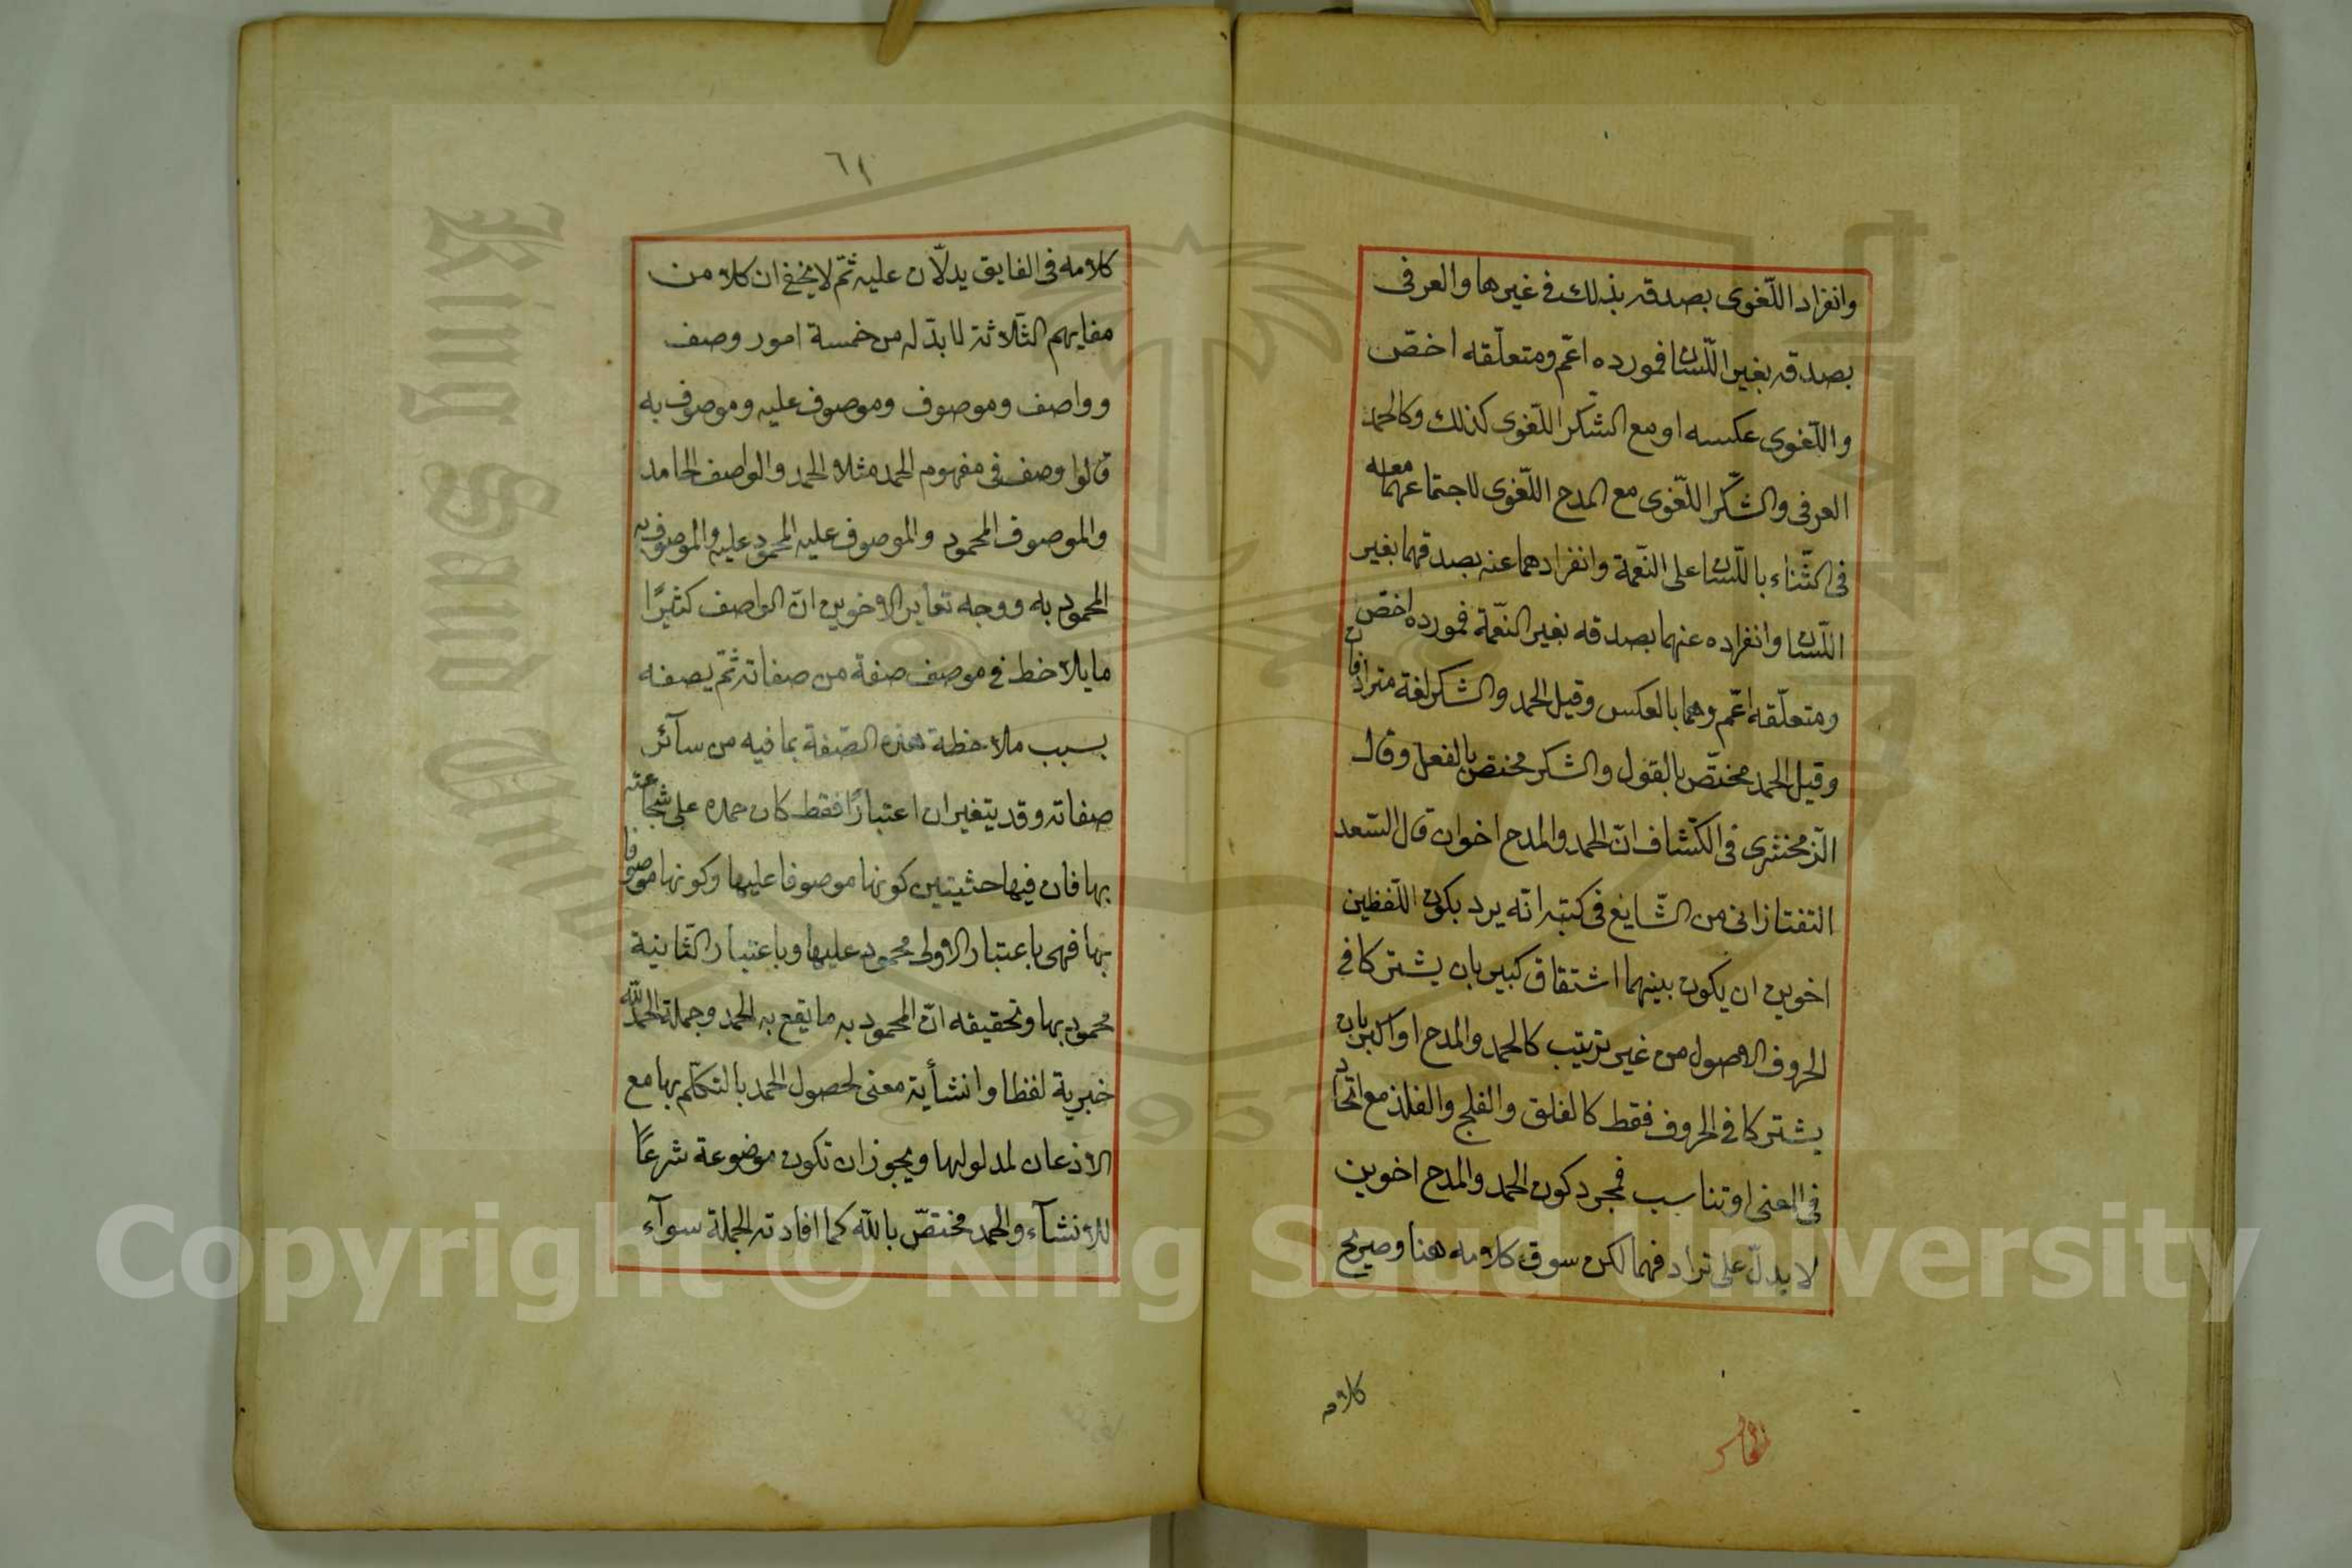 وانفراد اللّغوى بصدقه بذلك فى غيرها والعرفى
بصدقه بغير اللّسان فمورده اعّم ومتعلّقه اخصّ
واللّغوى عكسه او مع الشّكر اللّغوى كذلك وكالحمد
العرفى والشّكر اللّغوى مع المدح اللّغوى لاجتماعهما معه
فى الثّناء باللّسان على النّعمة وانفرادهما عنه بصدقهما بغير
اللّسان وانفراده عنهما بصدقه بغير النّعمة فمورده اخصّ
ومتعلّقه اعّم وهما بالعكس وقيل الحمد والشكر لغة مترادفان
وقيل الحمد مختصّ بالقول والشكر مختصّ بالفعل وقال
الزّمخشرى فى الكشّاف انّ الحمد والمدح اخوان قال السّعد
التفتازانى من الشّايع فى كتبه انّه يرد بكون اللّفظين
اخوين ان يكون بينهما اشتقاق كبير بان يشتركا فى
الحروف الاصول من غير ترتيب كالحمد والمدح او اكبر بان
يشتركا فى الحروف فقط كالفلق والفلج والفلذ مع اتّحاد
فى المعنى او تناسب فمجرد كون الحمد والمدح اخوين
لا يدلّ على ترادفهما لكن سوق كلامه هنا وصريح
كلامه
٦١
كلامه فى الفايق يدلّان عليه ثمّ لا يخفى ان كلا من
مفايهم الثّلاثة لا بدّ له من خمسة امور وصف
وواصف وموصوف وموصوف عليه وموصوف به
قالوا وصف فى مفهوم الحمد مثلا الحمد والواصف الحامد
والموصوف المحمود والموصوف عليه المحمود عليه والموصوف به
المحمود به ووجه تغاير الاخوين انّ الواصف كثيرًا
ما يلاحظ فى موصف صفة من صفاته ثمّ يصفه
بسبب ملاحظة هذه الصّفة بما فيه من سآئر
صفاته وقد يتغيران اعتبارًا فقط كان حمده على شجاعته
بها فان فيها حثيتين كونها موصوفا عليها وكونها موصوفا
بها فهى باعتبار الاولى محمود عليها وباعتبار الثّانية
محمود بها وتحقيقه انّ المحمود به ما يقع به الحمد وجملة الحمد لله
خبرية لفظا وانشأية معنى لحصول الحمد بالتكلّم بها مع
الاذعان لمدلولها ويجوز ان تكون موضوعة شرعًا
للانشآء والحمد مختصّ بالله كما افادته الجملة سوآء
King Saud University
1957
Copyright © King Saud University